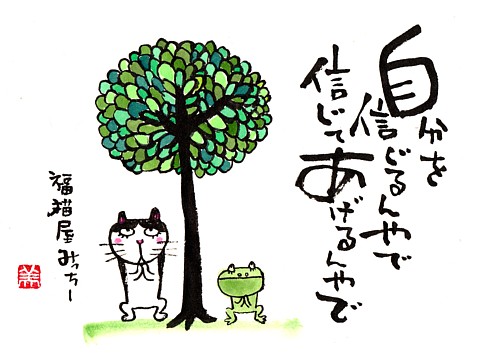 自分を
信じるんやで
信じて
あげるんやで
福猫屋みっちー